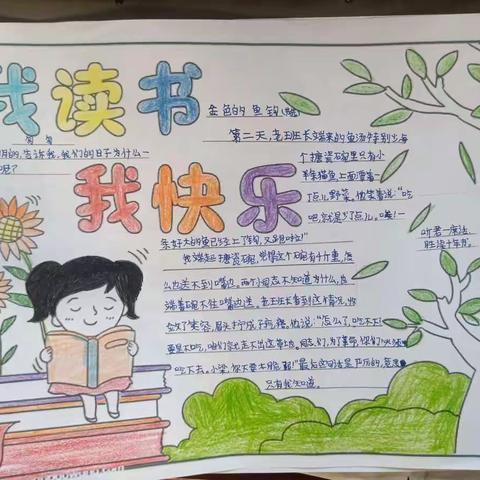 我读书
金色的鱼钩
第二天,老班长端来的鱼汤特别少,每
个搪瓷碗里只有小
半条猫鱼,上面漂着一
丁点儿野菜。他笑着说:“吃
吧,就是少了点儿。唉!一
条好大的鱼已经上了钩,又跑啦!”
我端起搪瓷碗,觉得这个碗有千斤重,怎
么也送不到嘴边。两个同志不知道为什么,也
端着碗不往嘴边送。老班长看到这情况,收
敛了笑容,眉头拧成了疙瘩。他说:“怎么了,吃不下?
要是不吃,咱们就走不出这草地。同志们,为了革命,你们必须
吃下去。小梁,你不要太脆弱!”最后这句话是严厉的,意思
只有我知道。
我快乐
匆匆
的,告诉我,我们的日子为什么一
呢?
听君一席话,
胜读十年书。